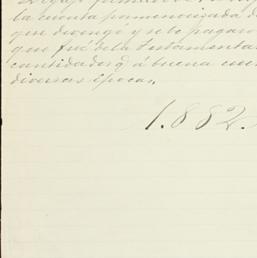 la cuenta pormenorizada de
que devengo y se le pagaro
que fué de la Testamenta
cantidades q á buena cuen
diversas épocas.
1.882.